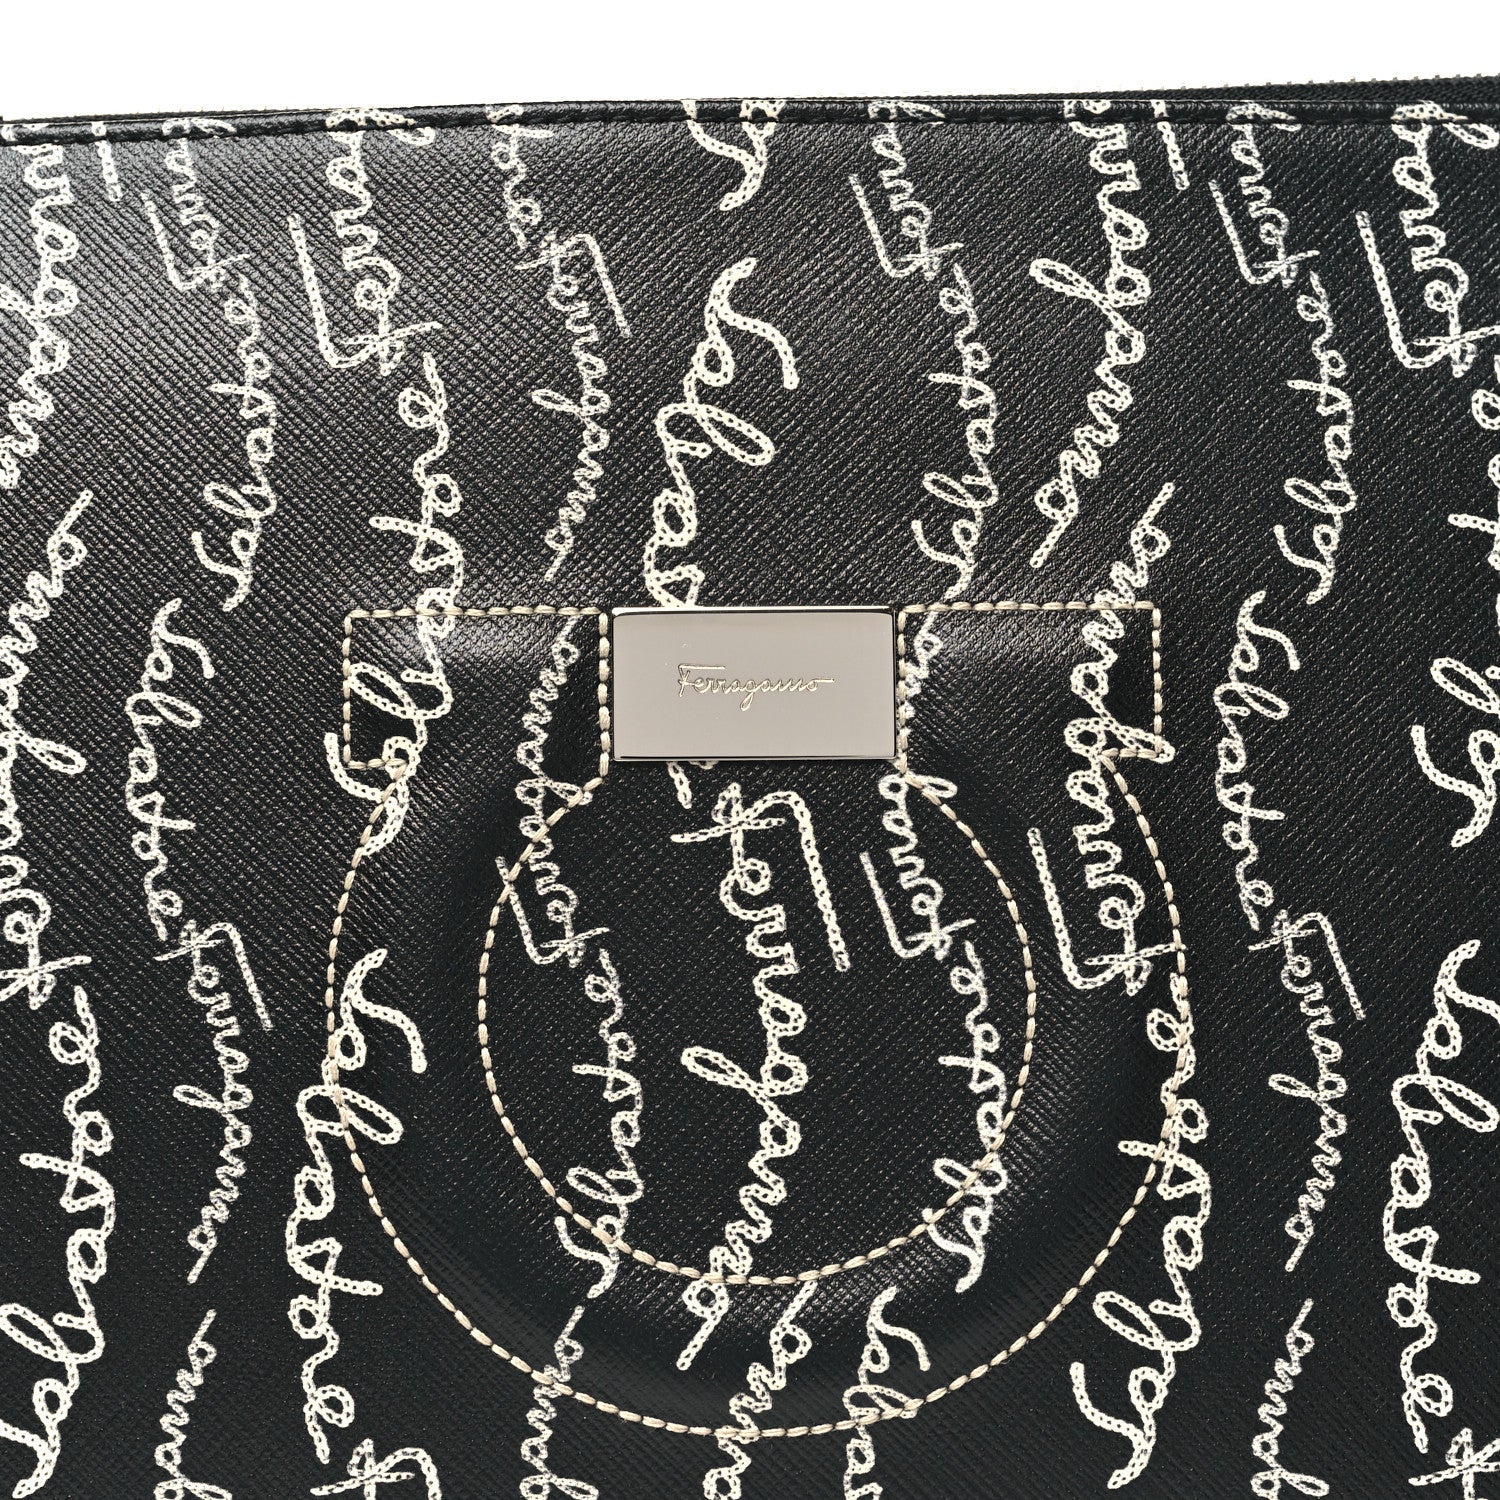 Ferragamo
Salvatore Ferragamo
Salvatore Ferragamo
Salvatore Ferragamo
Salvatore Ferragamo
Salvatore Ferragamo
Salvatore Ferragamo
Salvatore Ferragamo
Salvatore Ferragamo
Salvatore Ferragamo